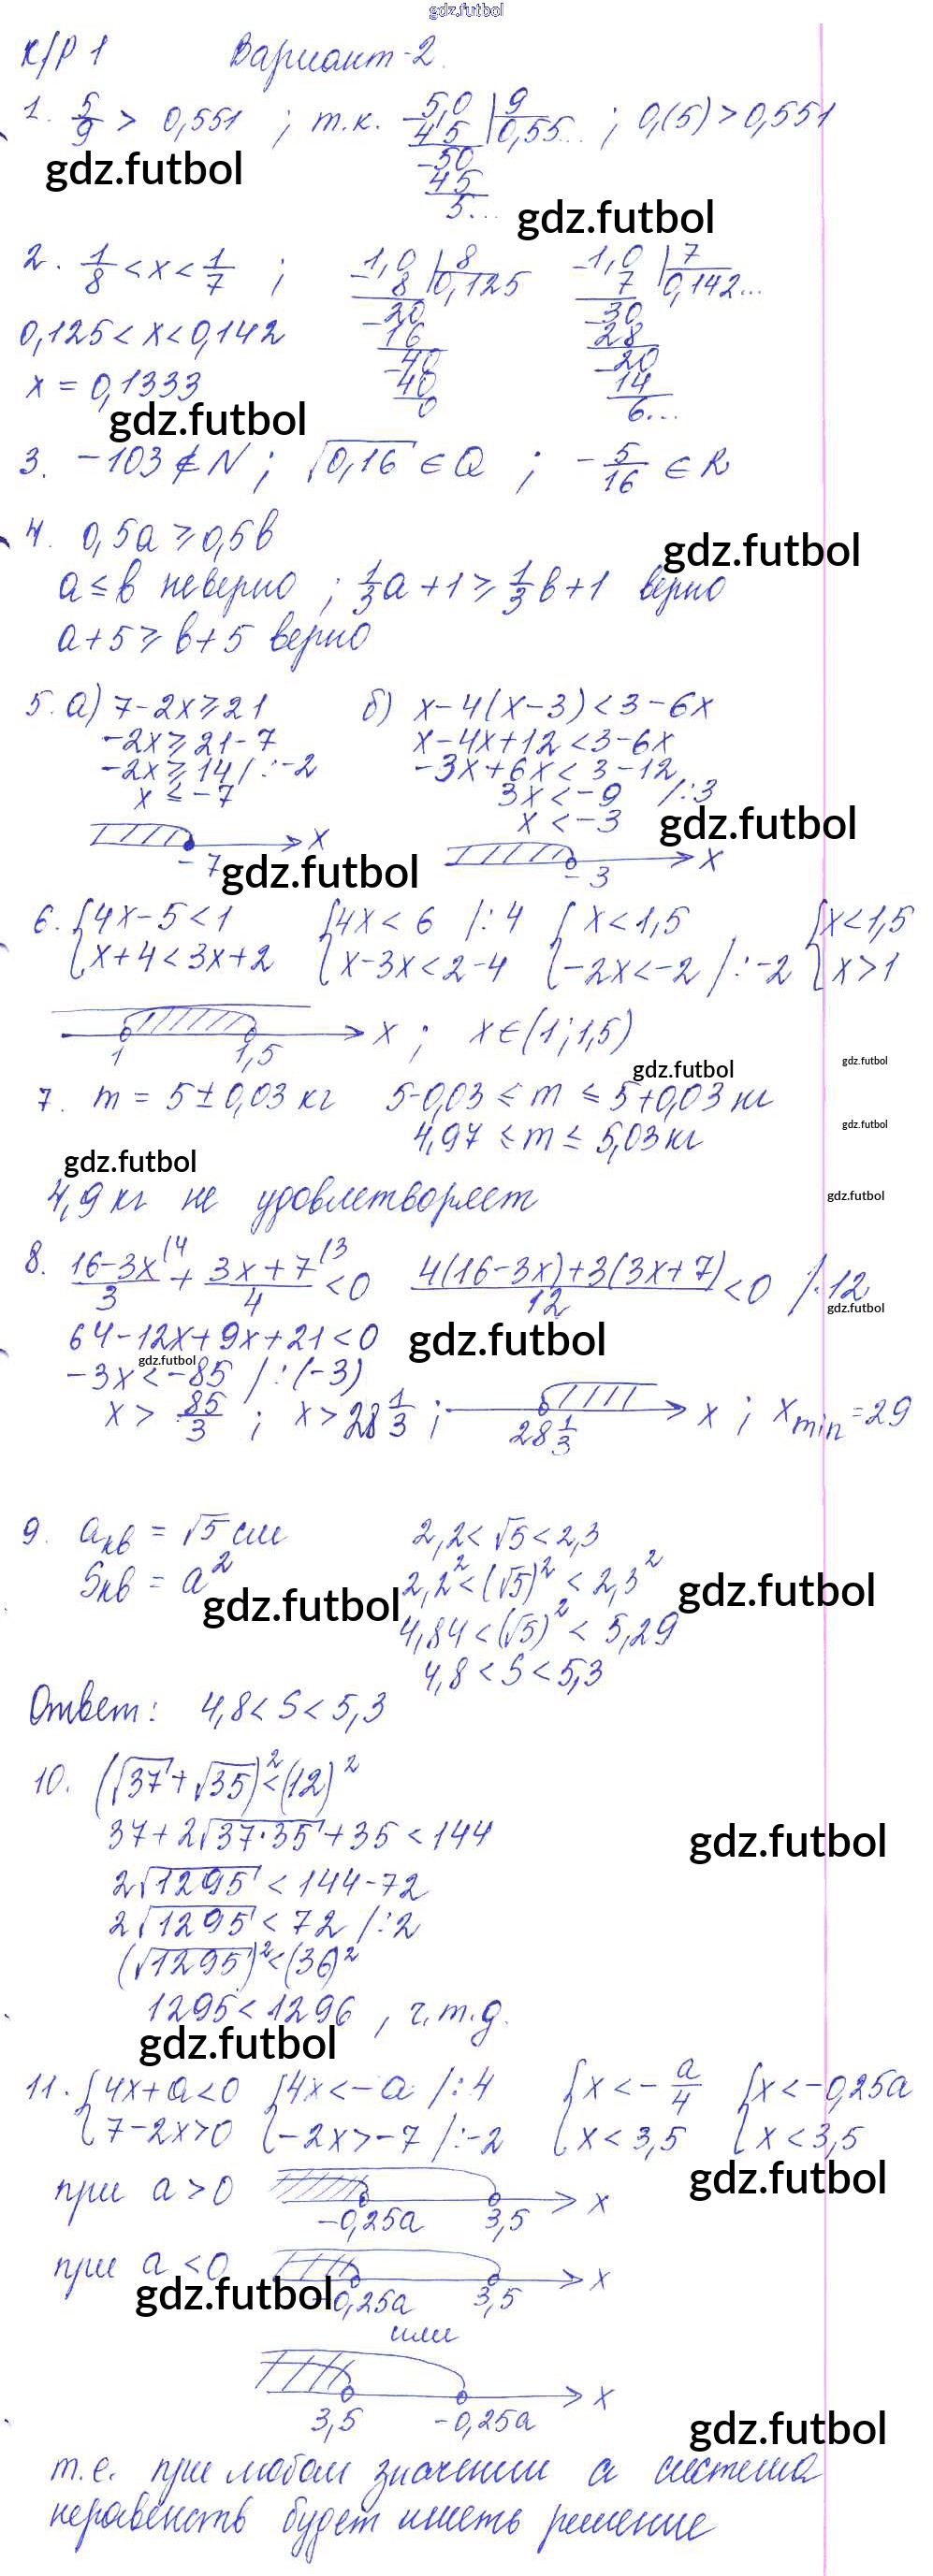 gdz.futbol
К/Р 1 Вариант-2.
1. 5/9 > 0,551 ; т.к. 5,0 | 9 ; 0,(5) > 0,551
-45 0,55...
gdz.futbol
-50
45
5...
gdz.futbol
2. 1/8 < x < 1/7 ; -1,0 | 8 -1,0 | 7
8 0,125 7 0,142...
-20 -30
0,125 < x < 0,142 16 28
-40 -20
x = 0,1333 40 14
0 6...
gdz.futbol
3. -103 ∉ N ; √0,16 ∈ Q ; -5/16 ∈ R
4. 0,5a ⩾ 0,5b
gdz.futbol
a ≤ b неверно ; 1/3 a + 1 ⩾ 1/3 b + 1 верно
a + 5 ⩾ b + 5 верно
5. а) 7 - 2x ⩾ 21 б) x - 4(x - 3) < 3 - 6x
-2x ⩾ 21 - 7 x - 4x + 12 < 3 - 6x
-2x ⩾ 14 / : -2 -3x + 6x < 3 - 12
x ≤ -7 3x < -9 / : 3
x < -3
gdz.futbol
x x
-7 -3
gdz.futbol
6. { 4x - 5 < 1 { 4x < 6 / : 4 { x < 1,5 { x < 1,5
x + 4 < 3x + 2 x - 3x < 2 - 4 -2x < -2 / : -2 x > 1
x ; x ∈ (1; 1,5)
1 1,5
gdz.futbol gdz.futbol
7. m = 5 ± 0,03 кг 5 - 0,03 ≤ m ≤ 5 + 0,03 кг
gdz.futbol
4,97 ≤ m ≤ 5,03 кг
gdz.futbol
4,9 кг не удовлетворяет
gdz.futbol
8. (16 - 3x)/3 /4 + (3x + 7)/4 /3 < 0 (4(16 - 3x) + 3(3x + 7))/12 < 0 / · 12
gdz.futbol
64 - 12x + 9x + 21 < 0
gdz.futbol
gdz.futbol
-3x < -85 / : (-3)
x > 85/3 ; x > 28 1/3 ; x ; x min = 29
28 1/3
9. aкв = √5 см 2,2 < √5 < 2,3
Sкв = a² 2,2² < (√5)² < 2,3²
gdz.futbol gdz.futbol
4,84 < (√5)² < 5,29
4,8 < S < 5,3
Ответ: 4,8 < S < 5,3
10. (√37 + √35)² < (12)²
37 + 2√37·35 + 35 < 144
gdz.futbol
2√1295 < 144 - 72
2√1295 < 72 / : 2
(√1295)² < (36)²
1295 < 1296 , ч.т.д.
gdz.futbol
11. { 4x + a < 0 { 4x < -a / : 4 { x < -a/4 { x < -0,25a
7 - 2x > 0 -2x > -7 / : -2 x < 3,5 x < 3,5
gdz.futbol
при a > 0 x
-0,25a 3,5
при a < 0 x
gdz.futbol
-0,25a 3,5
или
x
3,5 -0,25a
gdz.futbol
т.е. при любом значении a система
неравенств будет иметь решение